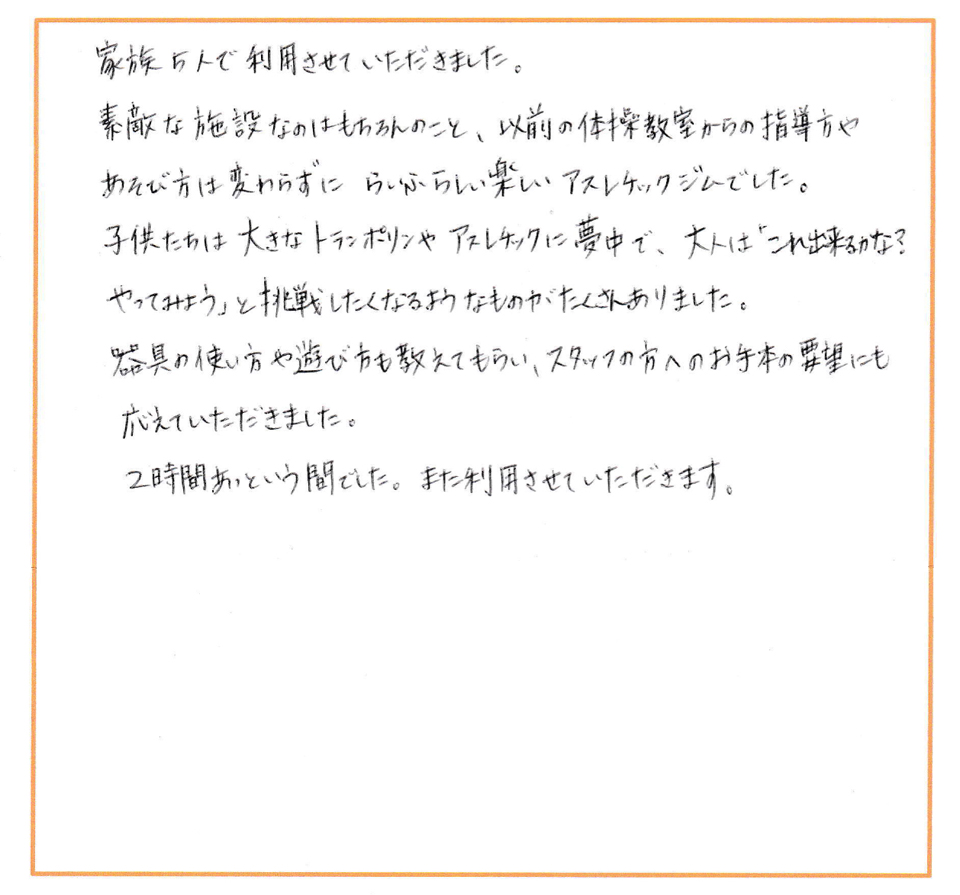 家族5人で利用させていただきました。
素敵な施設なのはもちろんのこと、以前の体操教室からの指導方や
あそび方は変わらずに らいふらしい楽しいアスレチックジムでした。
子供たちは大きなトランポリンやアスレチックに夢中で、大人は「これ出来るかな?
やってみよう」と挑戦したくなるようなものがたくさんありました。
器具の使い方や遊び方も教えてもらい、スタッフの方へのお手本の要望にも
応えていただきました。
2時間あっという間でした。また利用させていただきます。